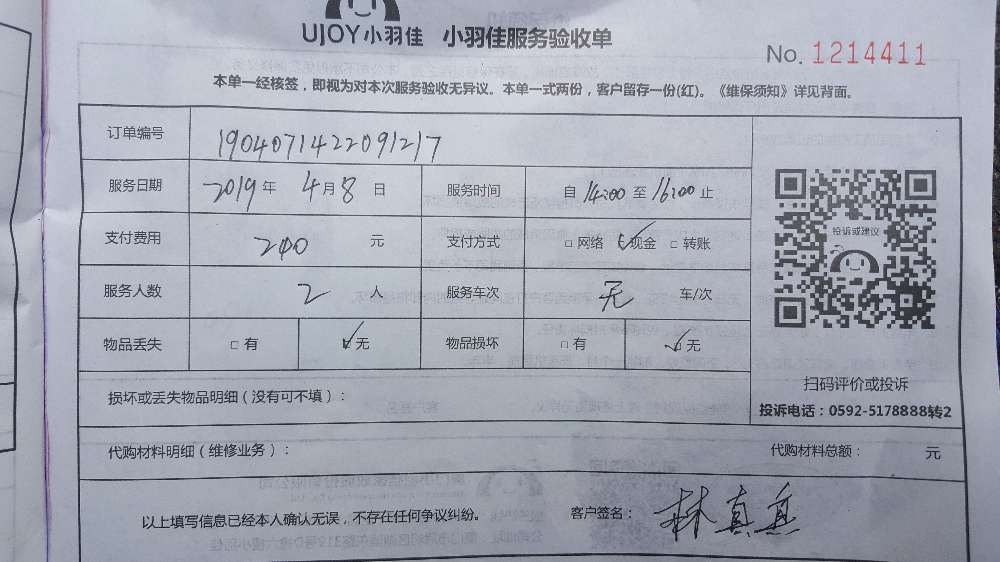 UJOY小羽佳 小羽佳服务验收单
No. 1214411
本单一经核签，即视为对本次服务验收无异议。本单一式两份，客户留存一份(红)。《维保须知》详见背面。
订单编号 1904071422091217
服务日期 2019年 4月8日 服务时间 自 14:00 至 16:00 止
支付费用 200 元 支付方式 □ 网络 ✓现金 □ 转账
服务人数 2 人 服务车次 无 车/次
物品丢失 □ 有 ☑ 无 物品损坏 □ 有 ☑ 无
投诉或建议
扫码评价或投诉
投诉电话：0592-5178888转2
损坏或丢失物品明细（没有可不填）：
代购材料明细（维修业务）： 代购材料总额： 元
以上填写信息已经本人确认无误，不存在任何争议纠纷。 客户签名： 林真